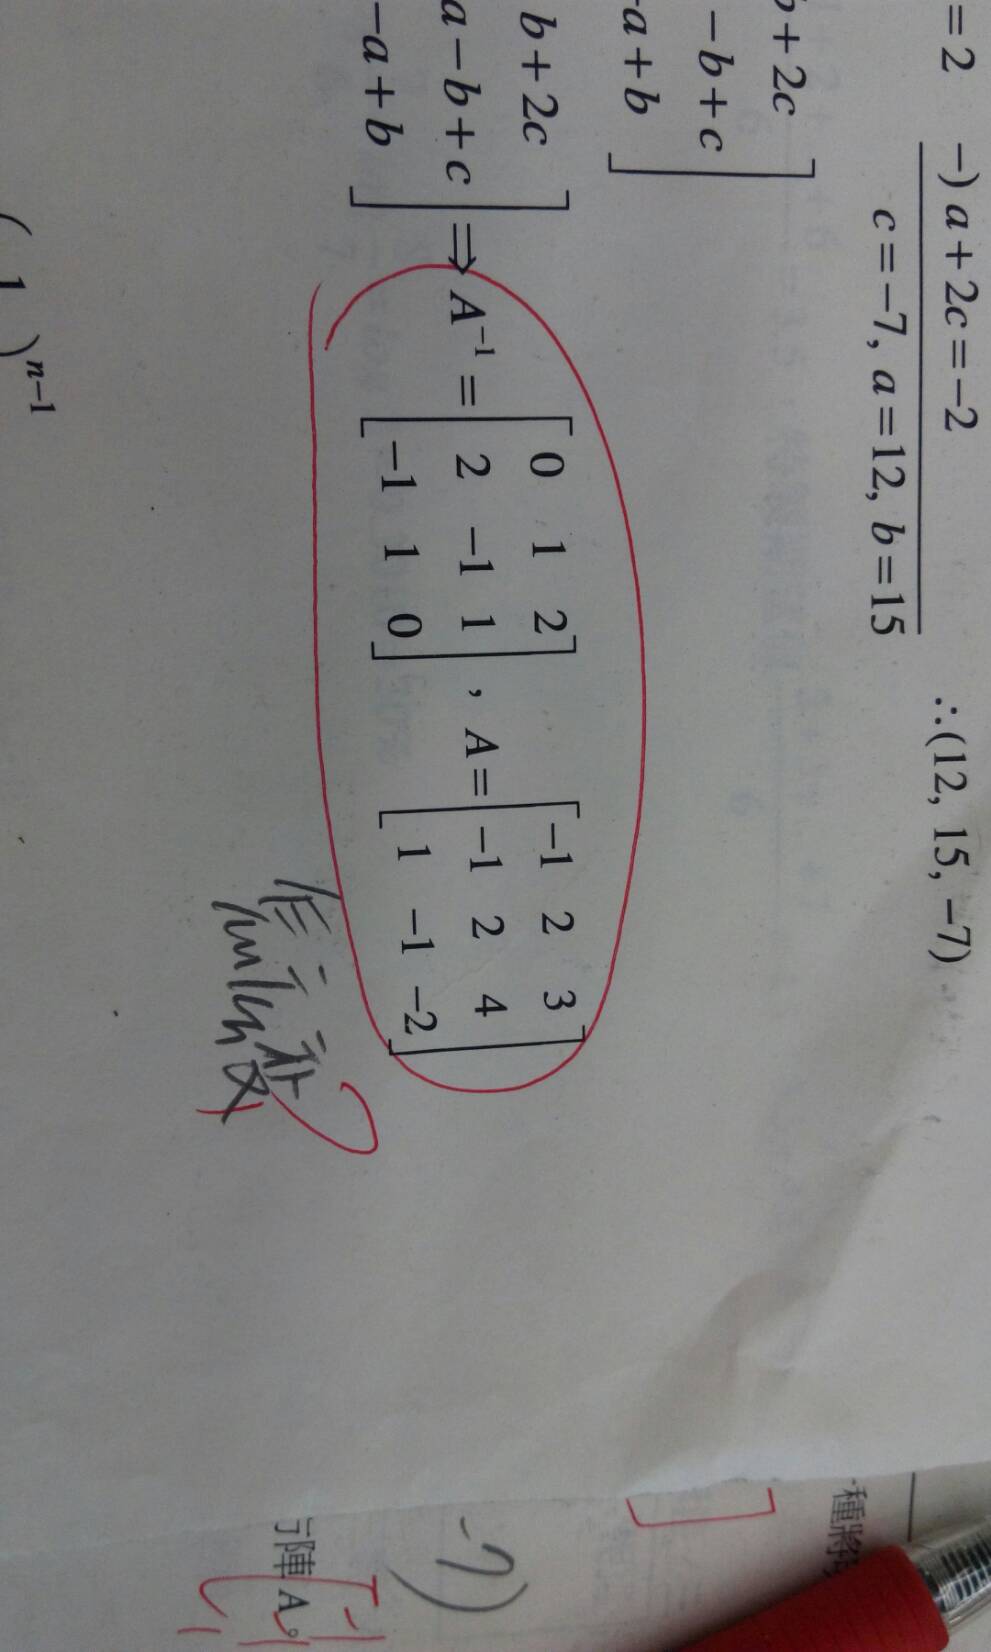 =2 -) a+2c=-2 ∴(12, 15, -7)
c=-7, a=12, b=15
b+2c
-b+c
-a+b
b+2c
a-b+c
-a+b
⇒ A⁻¹ = [0 1 2
2 -1 1
-1 1 0] , A = [-1 2 3
-1 2 4
1 -1 -2]
( 1 )ⁿ⁻¹
種將
-7)
陣 A。